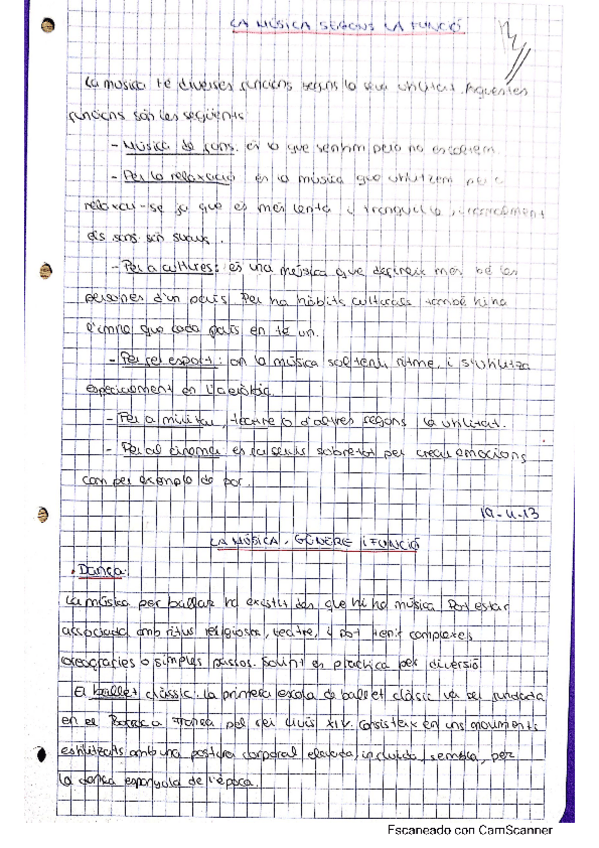 LA MÚSICA SEGONS LA FUNCIÓ
La música té diverses funcions segons la seva utilitat. Aquestes
funcions són les següents
- Música de fons: és la que sentim però no escoltem.
- Per la relaxació: és la música que utilitzem per a
relaxar-se ja que és més lenta i tranquil·la,
els sons són suaus.
- Per a cultures: és una música que defineix més bé les
persones d'un país. Per ha hàbits culturals també hi ha
l'imne que cada país en té un.
- Per fer esport: on la música sol tenir ritme, i s'utilitza
especialment en l'aeròbic.
- Per a militar, teatre o d'altres segons la utilitat.
- Per al cinema: es sobretot per crear emocions
com per exemple de por.
19-4-13
LA MÚSICA, GÈNERE I FUNCIÓ
· Dança:
La música per ballar ha existit des que hi ha música. Pot estar
associada amb ritus religiosos, teatre, i pot tenir complexes
coreografies o simples passos. Sovint es practica per diversió
El ballet clàssic: la primera escola de ballet clàsic va ser fundada
en el Barroca França pel rei Lluís XIV. Consisteix en uns moviments
estilitzats amb una postura corporal elevada, incluïda, sembla, per
la dança espanyola de l'època.
Escaneado con CamScanner